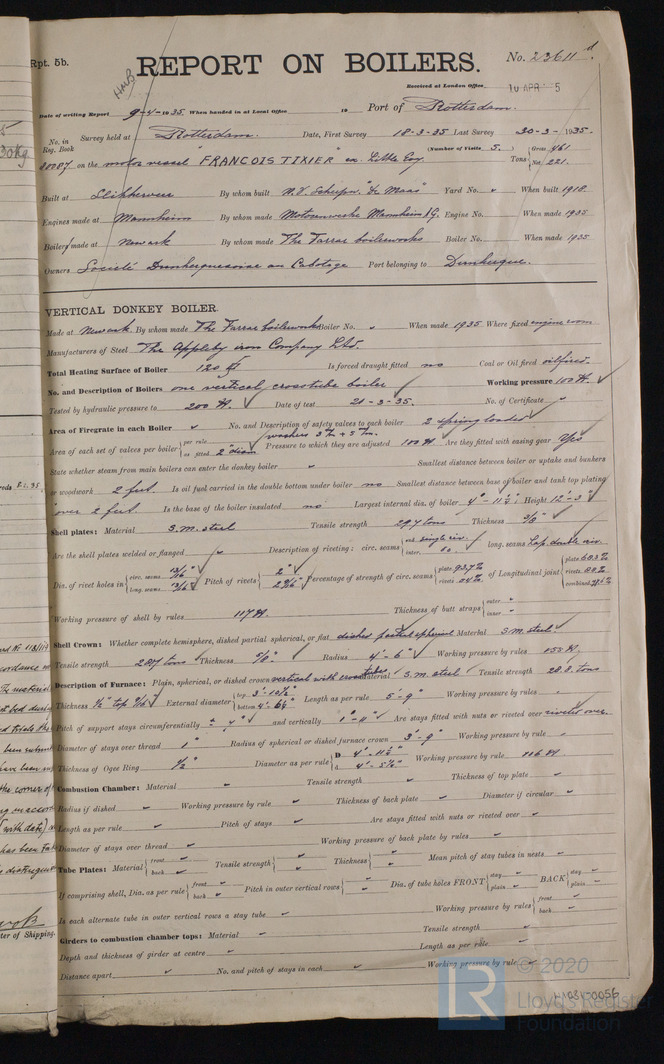 Rpt. 5b.
REPORT ON BOILERS.
No. 23611
Received at London Office 10 APR 5
Date of writing Report 9-4-1935 When handed in at Local Office 19 Port of Rotterdam.
No. in Reg. Book Survey held at Rotterdam. Date, First Survey 18-3-35 Last Survey 30-3-1935.
(Number of Visits 5.) Gross 461
on the motor vessel "FRANCOIS TIXIER" ex. Little Tons Net 221.
Built at Slikkerveer By whom built N.V. "De Maas" Yard No. When built 1918
Engines made at Mannheim By whom made Motorenwerke Mannheim A.G. Engine No. When made 1935
Boilers made at Newark By whom made The Farrar boilerworks Boiler No. When made 1935
Owners Société Dunkerquoise Cabotage Port belonging to Dunkerque.
VERTICAL DONKEY BOILER.
Made at Newark By whom made The Farrar boilerworks Boiler No. When made 1935 Where fixed engine room
Manufacturers of Steel The Appleby iron Company Ltd.
Total Heating Surface of Boiler 120 Is forced draught fitted no Coal or Oil fired oilfired.
No. and Description of Boilers one vertical crosstube boiler Working pressure 100
Tested by hydraulic pressure to 200 Date of test 21-3-35. No. of Certificate
Area of Firegrate in each Boiler No. and Description of safety valves to each boiler 2 spring loaded
Area of each set of valves per boiler per rule as fitted 2" diam Pressure to which they are adjusted 100 Are they fitted with easing gear Yes
State whether steam from main boilers can enter the donkey boiler Smallest distance between boiler or uptake and bunkers
or woodwork 2 feet. Is oil fuel carried in the double bottom under boiler no Smallest distance between base of boiler and tank top plating
over 2 feet. Is the base of the boiler insulated no Largest internal dia. of boiler 4'-11½" Height 12'-3"
Shell plates: Material S.M. steel Tensile strength 29.7 tons Thickness
Are the shell plates welded or flanged Description of riveting: circ. seams end single riv. inter. long. seams Lap, double riv.
Dia. of rivet holes in circ. seams 13/16" long. seams 13/16" Pitch of rivets 2" Percentage of strength of circ. seams plate rivets of Longitudinal joint plate rivets combined
Working pressure of shell by rules 117 Thickness of butt straps outer inner
Shell Crown: Whether complete hemisphere, dished partial spherical, or flat dished partial spherical Material S.M. steel.
Tensile strength tons Thickness 5/8" Radius 4'-6" Working pressure by rules
Description of Furnace: Plain, spherical, or dished crown vertical with crosstubes Material S.M. steel Tensile strength 28.3 tons
Thickness top External diameter top bottom Length as per rule 5'-9" Working pressure by rules
Pitch of support stays circumferentially and vertically Are stays fitted with nuts or riveted over riveted over.
Diameter of stays over thread 1" Radius of spherical or dished furnace crown 3'-9" Working pressure by rule
Thickness of Ogee Ring Diameter as per rule D 4'-11½" d 4'-5¼" Working pressure by rule 106
Combustion Chamber: Material Tensile strength Thickness of top plate
Radius if dished Working pressure by rule Thickness of back plate Diameter if circular
Length as per rule Pitch of stays Are stays fitted with nuts or riveted over
Diameter of stays over thread Working pressure of back plate by rules
Tube Plates: Material front back Tensile strength Thickness Mean pitch of stay tubes in nests
If comprising shell, Dia. as per rule front back Pitch in outer vertical rows Dia. of tube holes FRONT stay plain BACK stay plain
Is each alternate tube in outer vertical rows a stay tube Working pressure by rules front back
Girders to combustion chamber tops: Material Tensile strength
Depth and thickness of girder at centre Length as per rule
Distance apart No. and pitch of stays in each Working pressure by rule
© 2020
LR
Lloyd's Register
Foundation